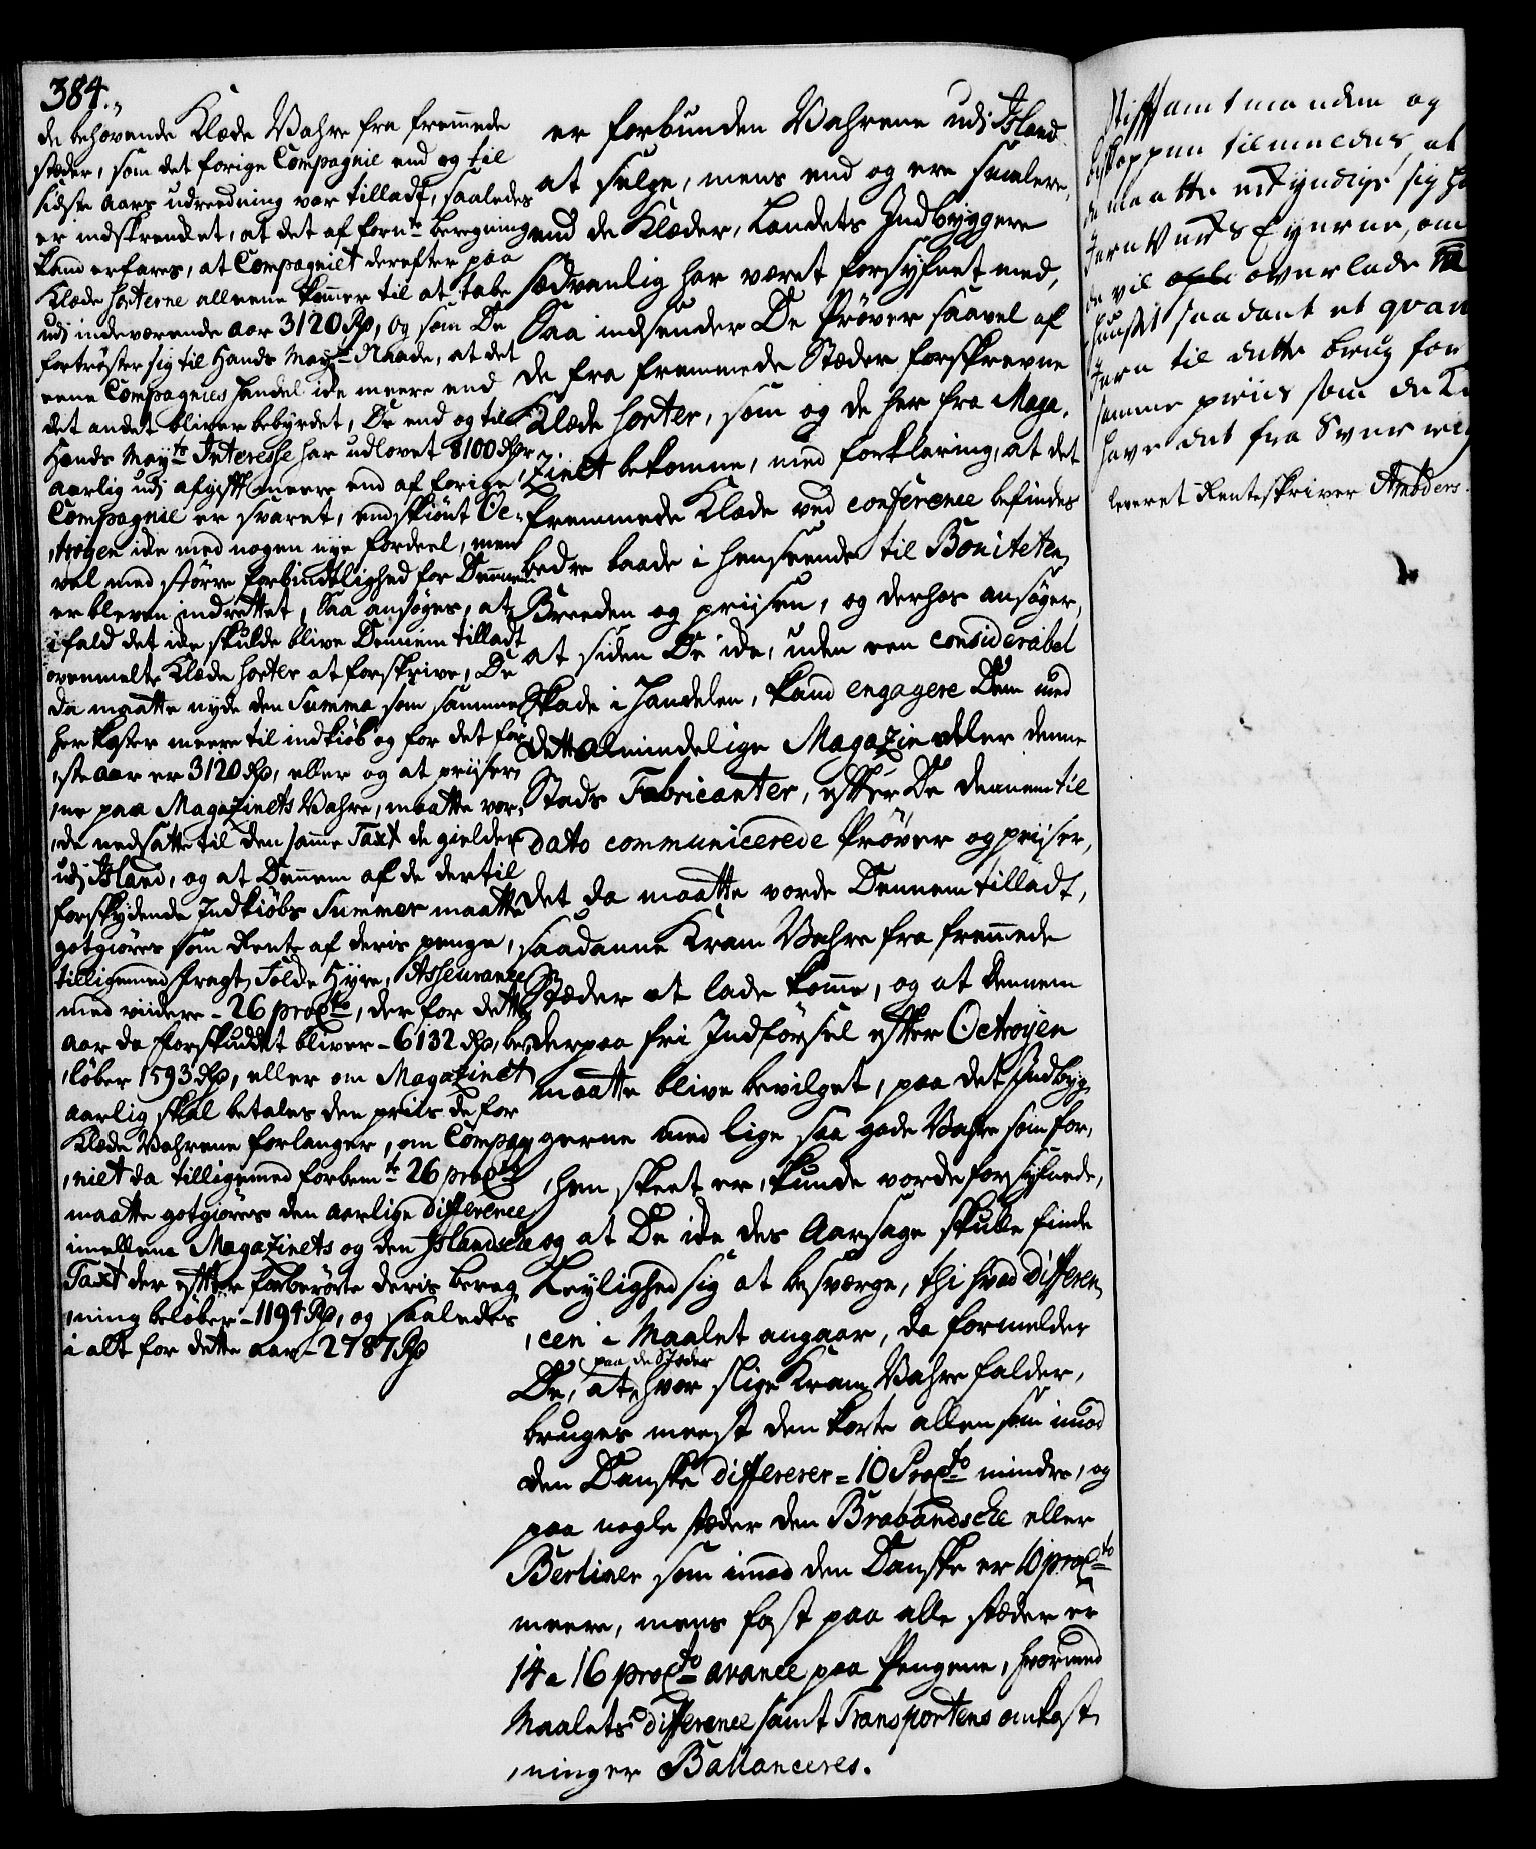 384.,
de behövende Klæde Vahre fra fremmede
stæder, som det forige Compagnie end og til
sidste aars udreedning var tilladt, saaledes
er indskrenket, at det af fornte beregning
kand erfares, at Compagniet derefter paa
Klæde sorterne alleene kommer til at tabe
udi indeværende aar 3120 Rd, og som De
fortröster sig til Hands Maytz Naade, at det
eene Compagnies Handel icke meere end
det andet bliver bebyrdet, De end og til
Hands Maytz Interesse har udlovet 8100 Rdr
aarlig udi afgift meere end af forige
Compagnie er svaret, endskiönt Oc-
,troyen icke med nogen nye fordeel, men
vel med större forbindtlighed for Dennem
er bleven indrettet, Saa ansöges, at
ifald det icke skulde blive Dennem tilladt
ovenmelte Klæde sorter at forskrive, De
da maatte nyde den Summa som samme
her koster meere til indkiöb og for det för-
,ste aar er 3120 Rd, eller og at priser-
,ne paa Magazinets Vahre, maatte vor-
,de nedsatte til den samme Taxt de gielder
udi Island, og at Dennem af de dertil
forskydende Indkiöbs Summer maatte
gotgiöres som Rente af deris penge,
tilligemed Fragt, Told, Hyre, Asseurance
med viidere - 26 procto, der for dette
aar da forskuddet bliver - 6132 Rd, be-
,löber 1593 Rd, eller om Magazinet
aarlig skal betales den priis de for
Klæde Vahrene forlanger, om Compag-
,niet da tilligemed forbemte 26 procto
maatte gotgiöres den aarlige difference
imellem Magazinets og den Islandske
Taxt der efter forberörte deris bereg-
,ning belöber - 1194 Rd, og saaledes
i alt for dette aar - 2787 Rd
er forbunden Vahrene udi Island
at selge, mens end og ere smalere,
end de Klæder, Landets Indbyggere
sædvanlig har været forsyfnet med,
Saa indsender De Pröver saavel af
de fra fremmede Stæder forskrevne
Klæde sorter, som og de her fra Maga-
,zinet bekomne, med forklaring, at det
fremmede Klæde ved conference befindes
bedre baade i henseende til Boniteten,
Breeden og priisen, og derhos ansöger,
at siden De icke, uden een considerabel
Skade i Handelen, kand engagere Dem med
dette almindelige Magazin eller denne
Stads Fabricanter, efter De dennem til
dato communicerede Pröver og priiser,
det da maatte vorde Dennem tilladt,
saadanne Kram Vahre fra fremmede
Stæder at lade komme, og at Dennem
derpaa fri Indförsel efter Octroyen
maatte blive bevilget, paa det Indbyg-
gerne med lige saa gode Vahre som for-
,hen skeet er, kunde vorde forsyfnede,
og at De icke des Aarsage skulle finde
Leylighed sig at besværge, thi hvad differen-
,cen i Maalet angaar, da formelder
paa de Stæder
De, at hvor slige Kram Vahre falder,
bruges meest den korte allen som imod
den Danske differerer = 10 Procto mindre, og
paa nogle stæder den Brabandsche eller
Berliner som imod den Danske er 10 procto
meere, mens fast paa alle stæder er
14 a 16 procto avance paa Pengene, hvormed
Maalets difference samt Transportens omkost-
,ninger Ballanceres.
Stiftamtmanden og
Biskoppen tilmeldes, at
de maatte
Jern Verks Eyerne, om
de vil overlade
Huuset saadant et qvan
Jern til dette brug for
samme priis som de
have det fra Sverrig
leveret Renteskriver